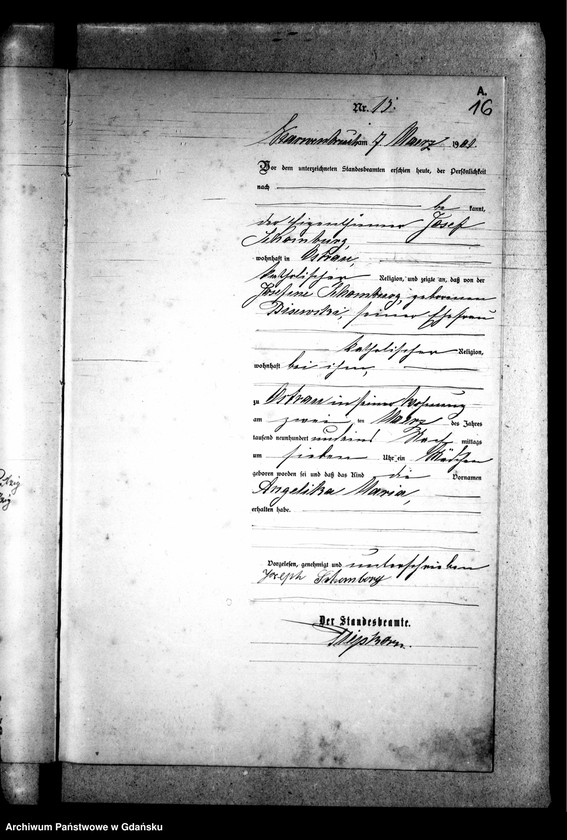 A.
16
Nr. 15.
am 7 Maerz 1901.
Vor dem unterzeichneten Standesbeamten erschien heute, der Persönlichkeit
nach
be kannt,
der Eigenthümer Josef
Schomburg,
wohnhaft in Ostrau,
katholischer Religion, und zeigte an, daß von der
Josefine Schomburg, geborenen
Bisewski, seiner Ehefrau
katholischer Religion,
wohnhaft bei ihm,
zu Ostrau in seiner Wohnung
am zwei ten Maerz des Jahres
tausend neunhundert und eins Nach mittags
um sieben Uhr ein Mädchen
geboren worden sei und daß das Kind die Vornamen
Angelika Maria,
erhalten habe.
Vorgelesen, genehmigt und unterschrieben
Joseph Schomborg
Der Standesbeamte.
Archiwum Państwowe w Gdańsku